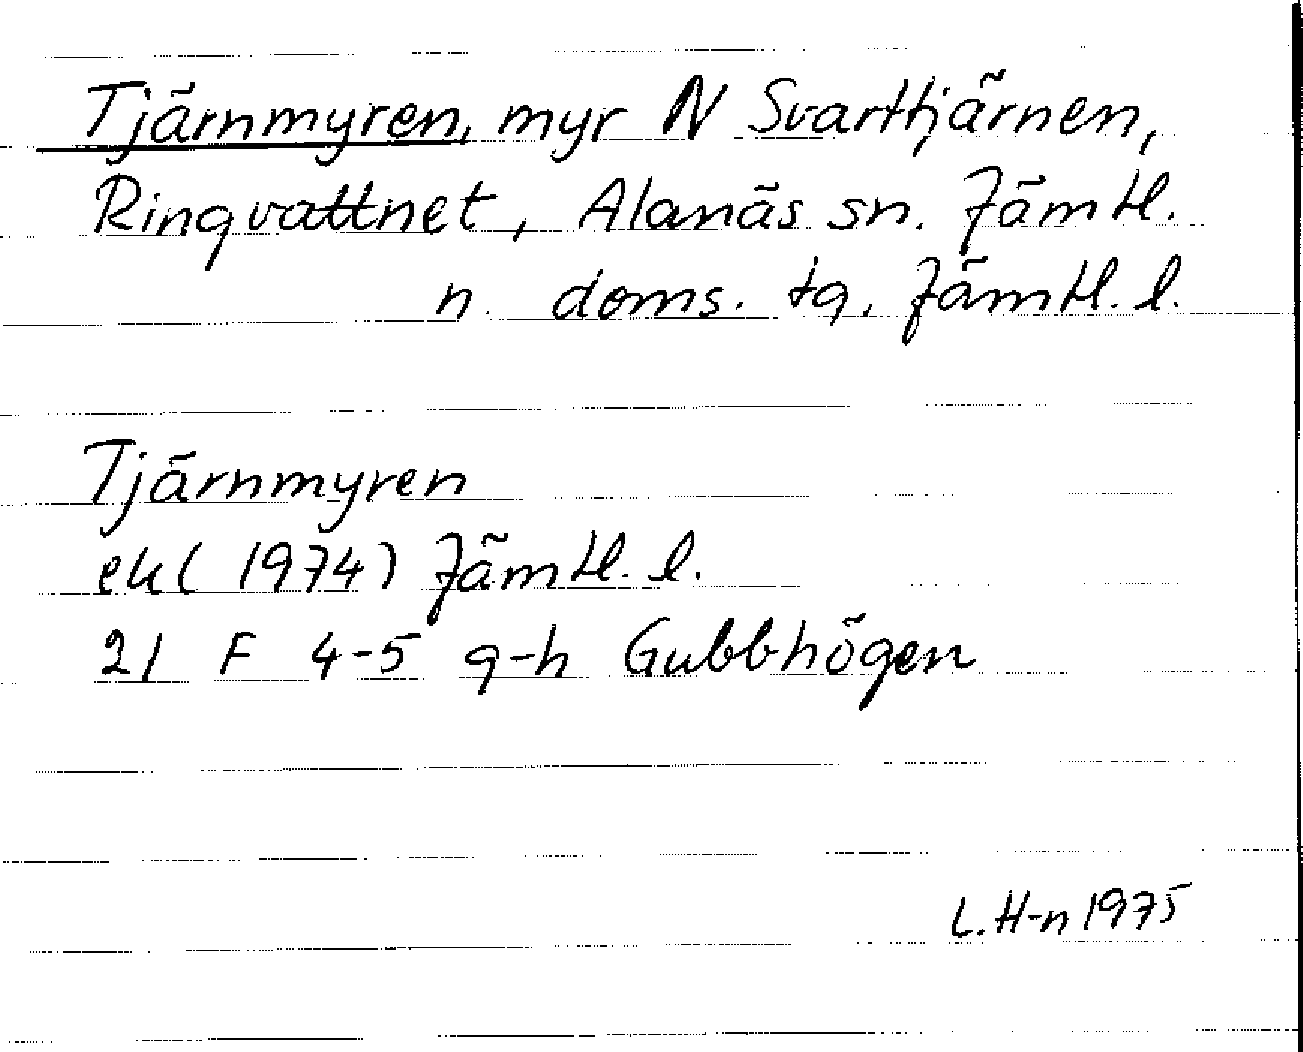 Tjärnmyren, myr N Svarttjärnen,
Ringvattnet, Alanäs sn. Jämtl.
n. doms. tg, Jämtl. l.
Tjärnmyren
ek (1974) Jämtl. l.
21 F 4-5 g-h Gubbhögen
L. H-n 1975